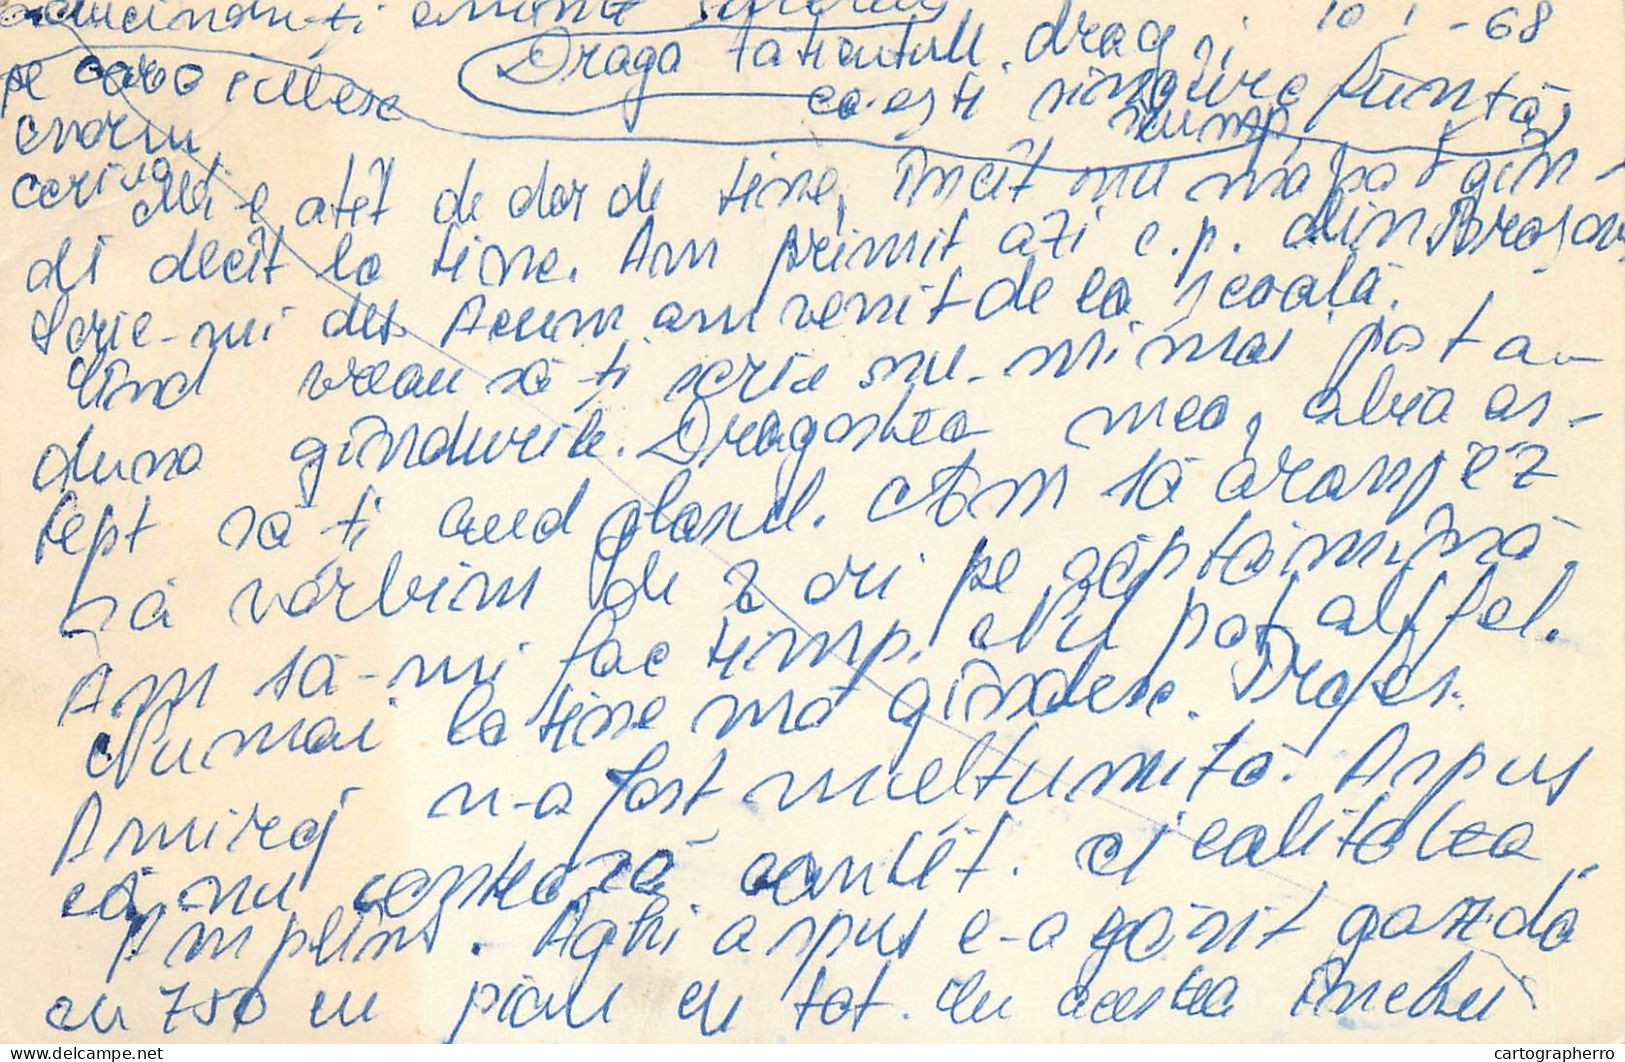 aducându-ți aminte
10 I -68
Draga taticutului dragă și
pe care iubesc
ca ești singura ființă,
enorm
scump
Carina
Mi-e atît de dor de tine, încît nu mă pot gîn-
di decît la tine. Am primit azi c.p. din Brașov
Scrie-mi des. Acum am venit de la școală.
Cînd vreau să-ți scriu nu-mi mai pot a-
duna gîndurile. Dragostea mea, abia aș-
tept să-ți aud glasul. Am să aranjez
să vorbim de 2 ori pe săptămînă
Am să-mi fac timp. Nu pot altfel.
Numai la tine mă gîndesc. Profes.
Amiraș n-a fost mulțumită. A spus
că nu contează cantit. ci calitatea
Împlins. Aghi a spus c-a găsit gazdă
cu 750 cu pian cu tot. Cu acestea închei
cartographerro